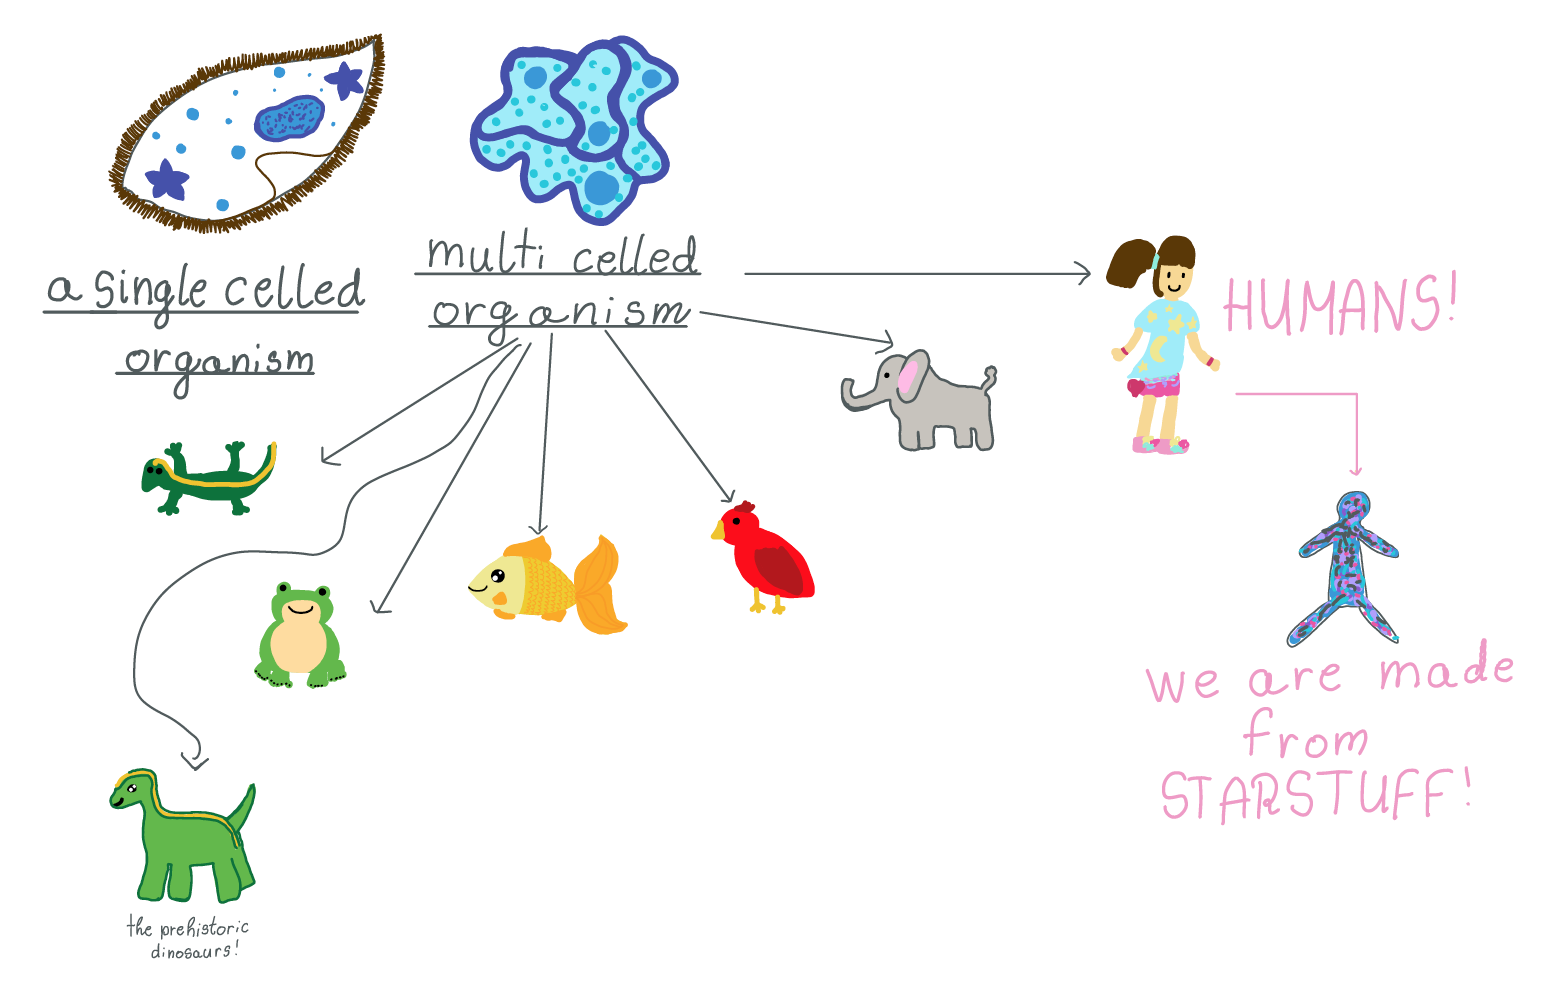 a single celled
organism
multi celled
organism
HUMANS!
we are made
from
STARSTUFF!
the prehistoric
dinosaurs!